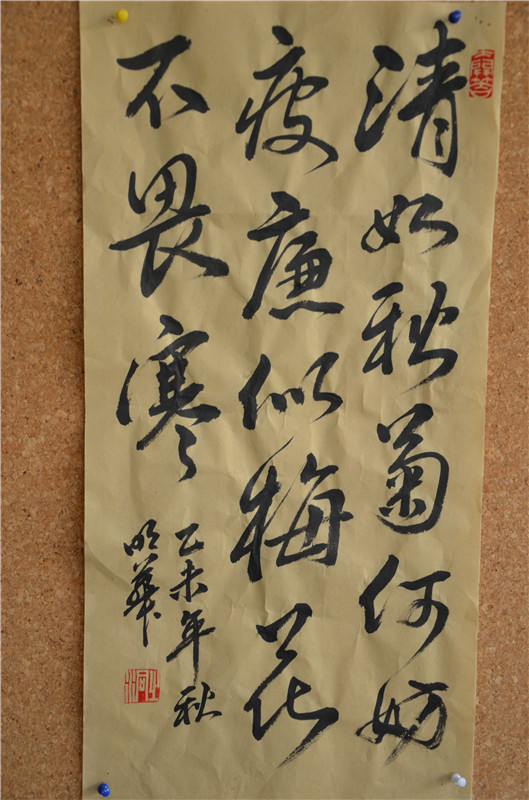 清如秋菊何妨
疲廉似梅花
不畏寒
乙未年秋
明華